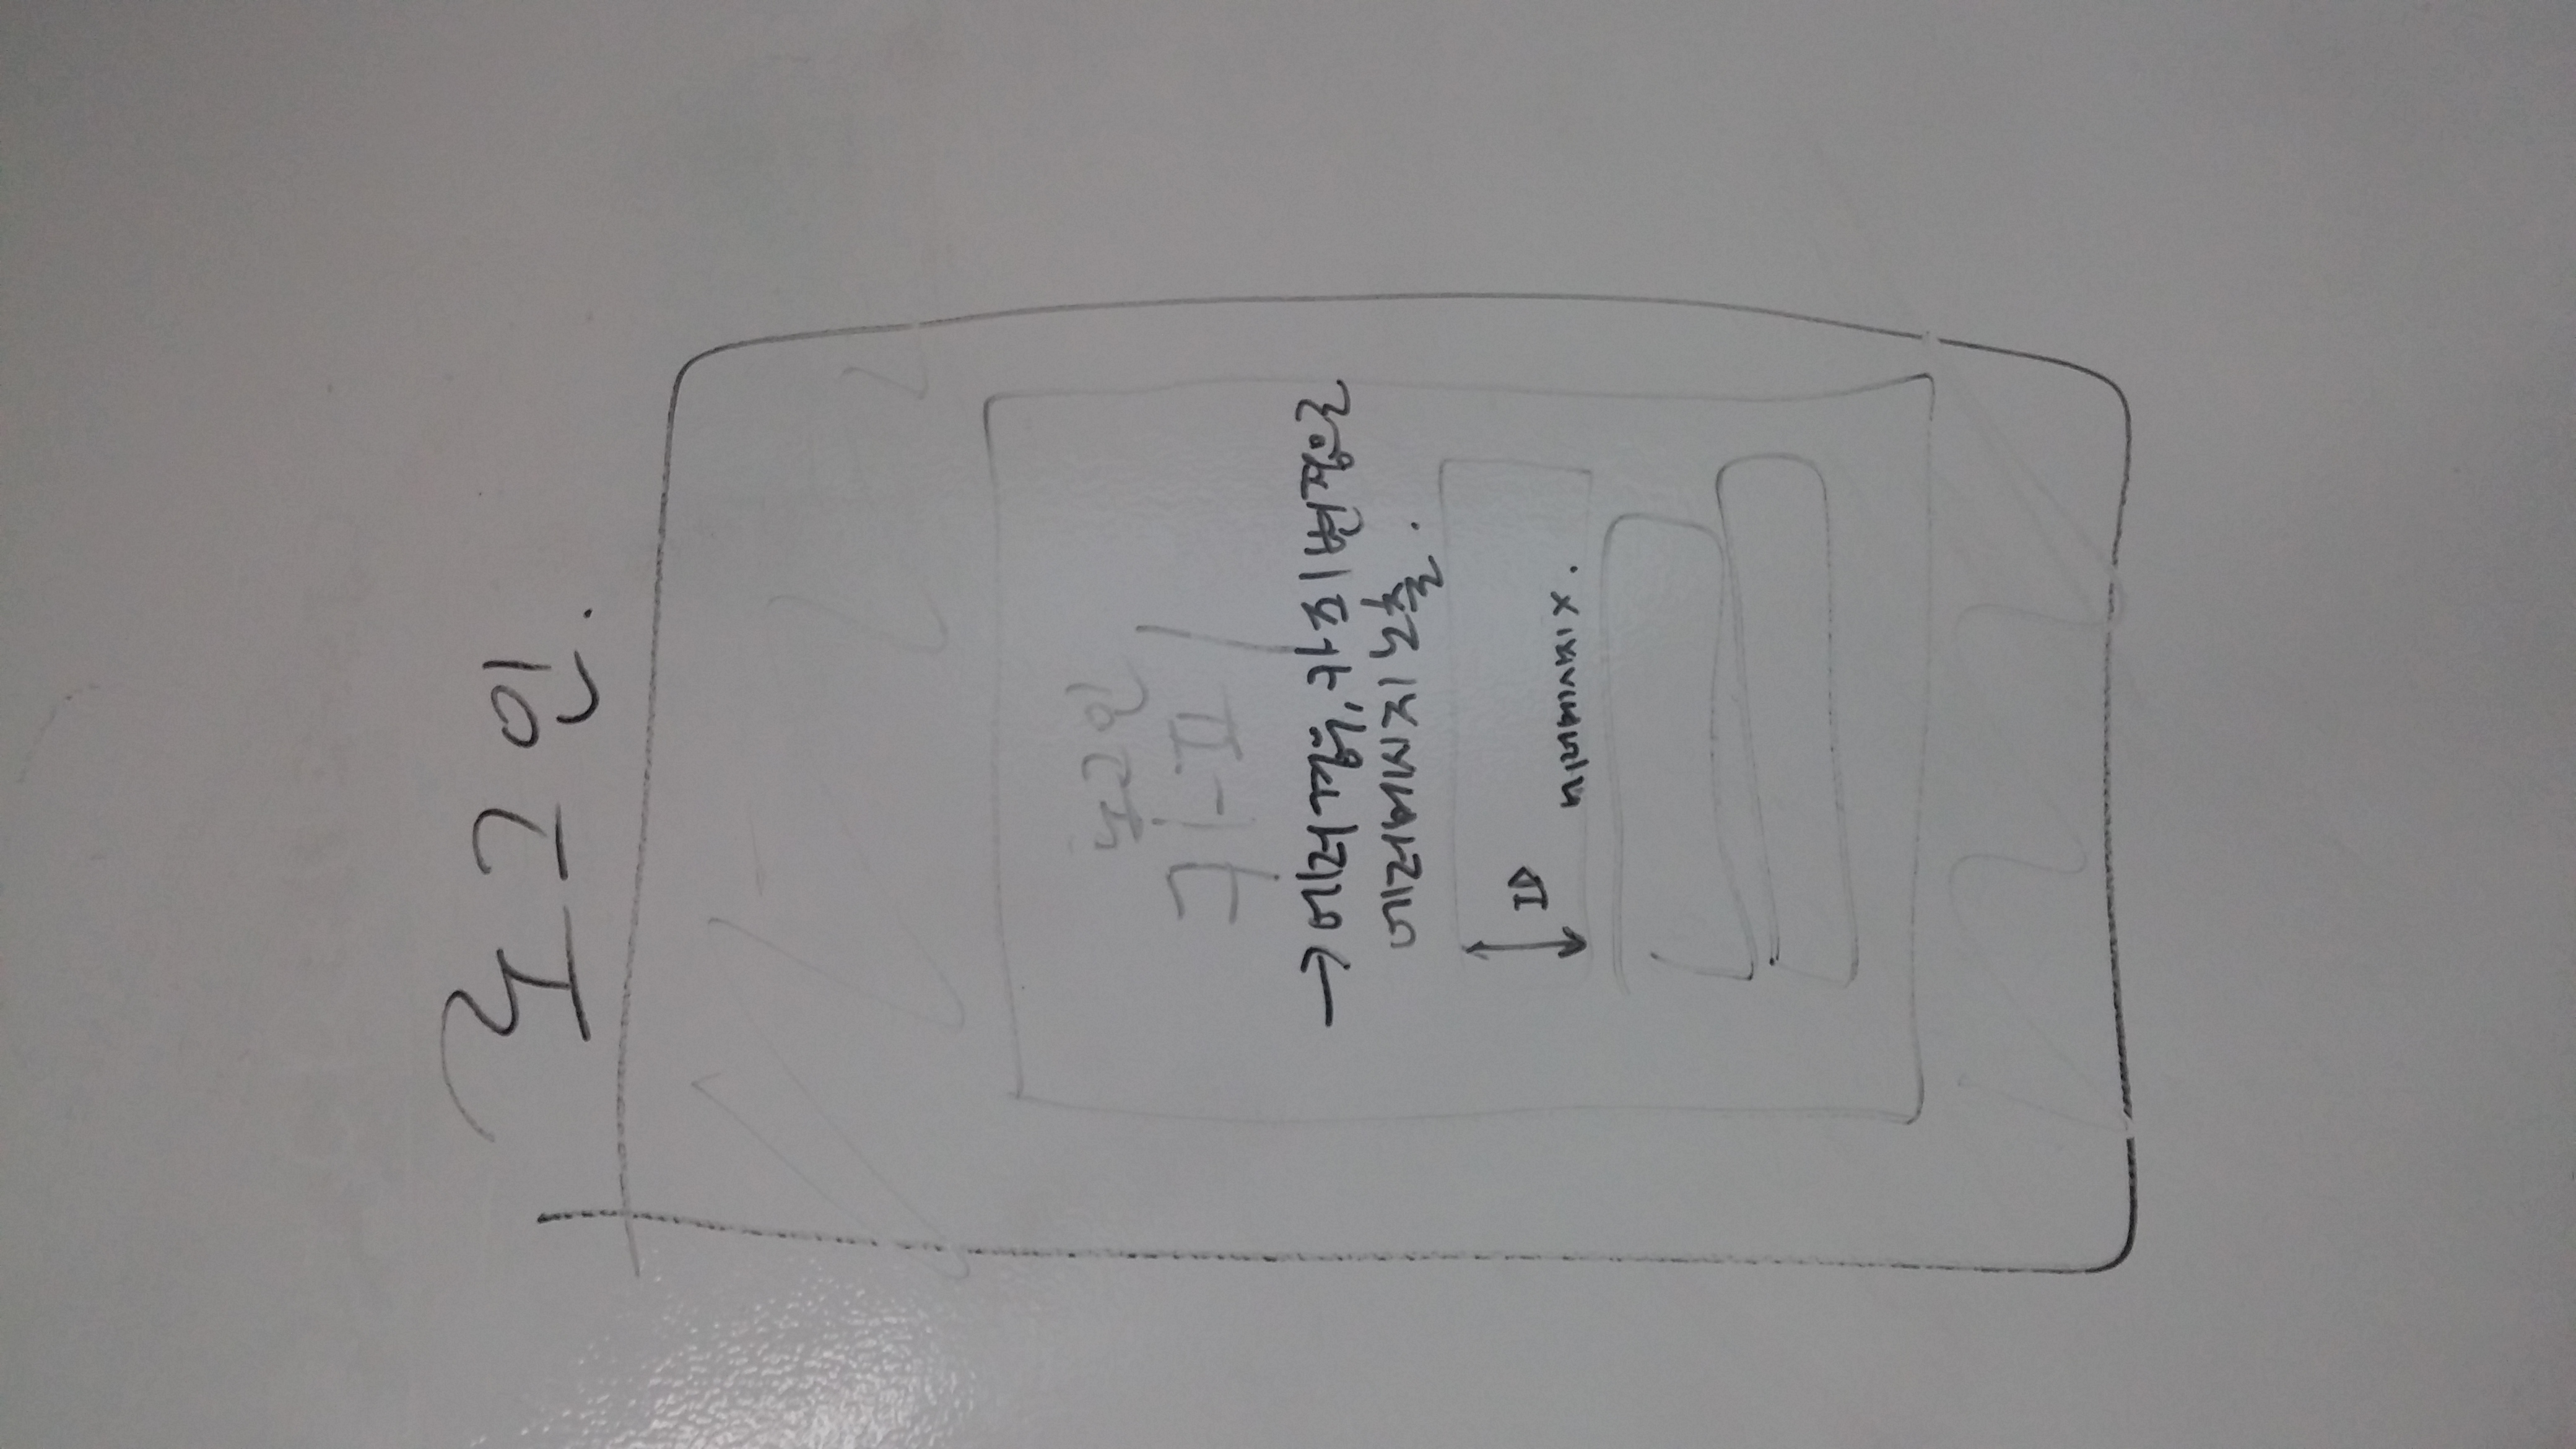 로그인.
로그인
카피
→ 에러경우, 카피변경으로
에러메시지 노출.
ID
에러메시지 X.